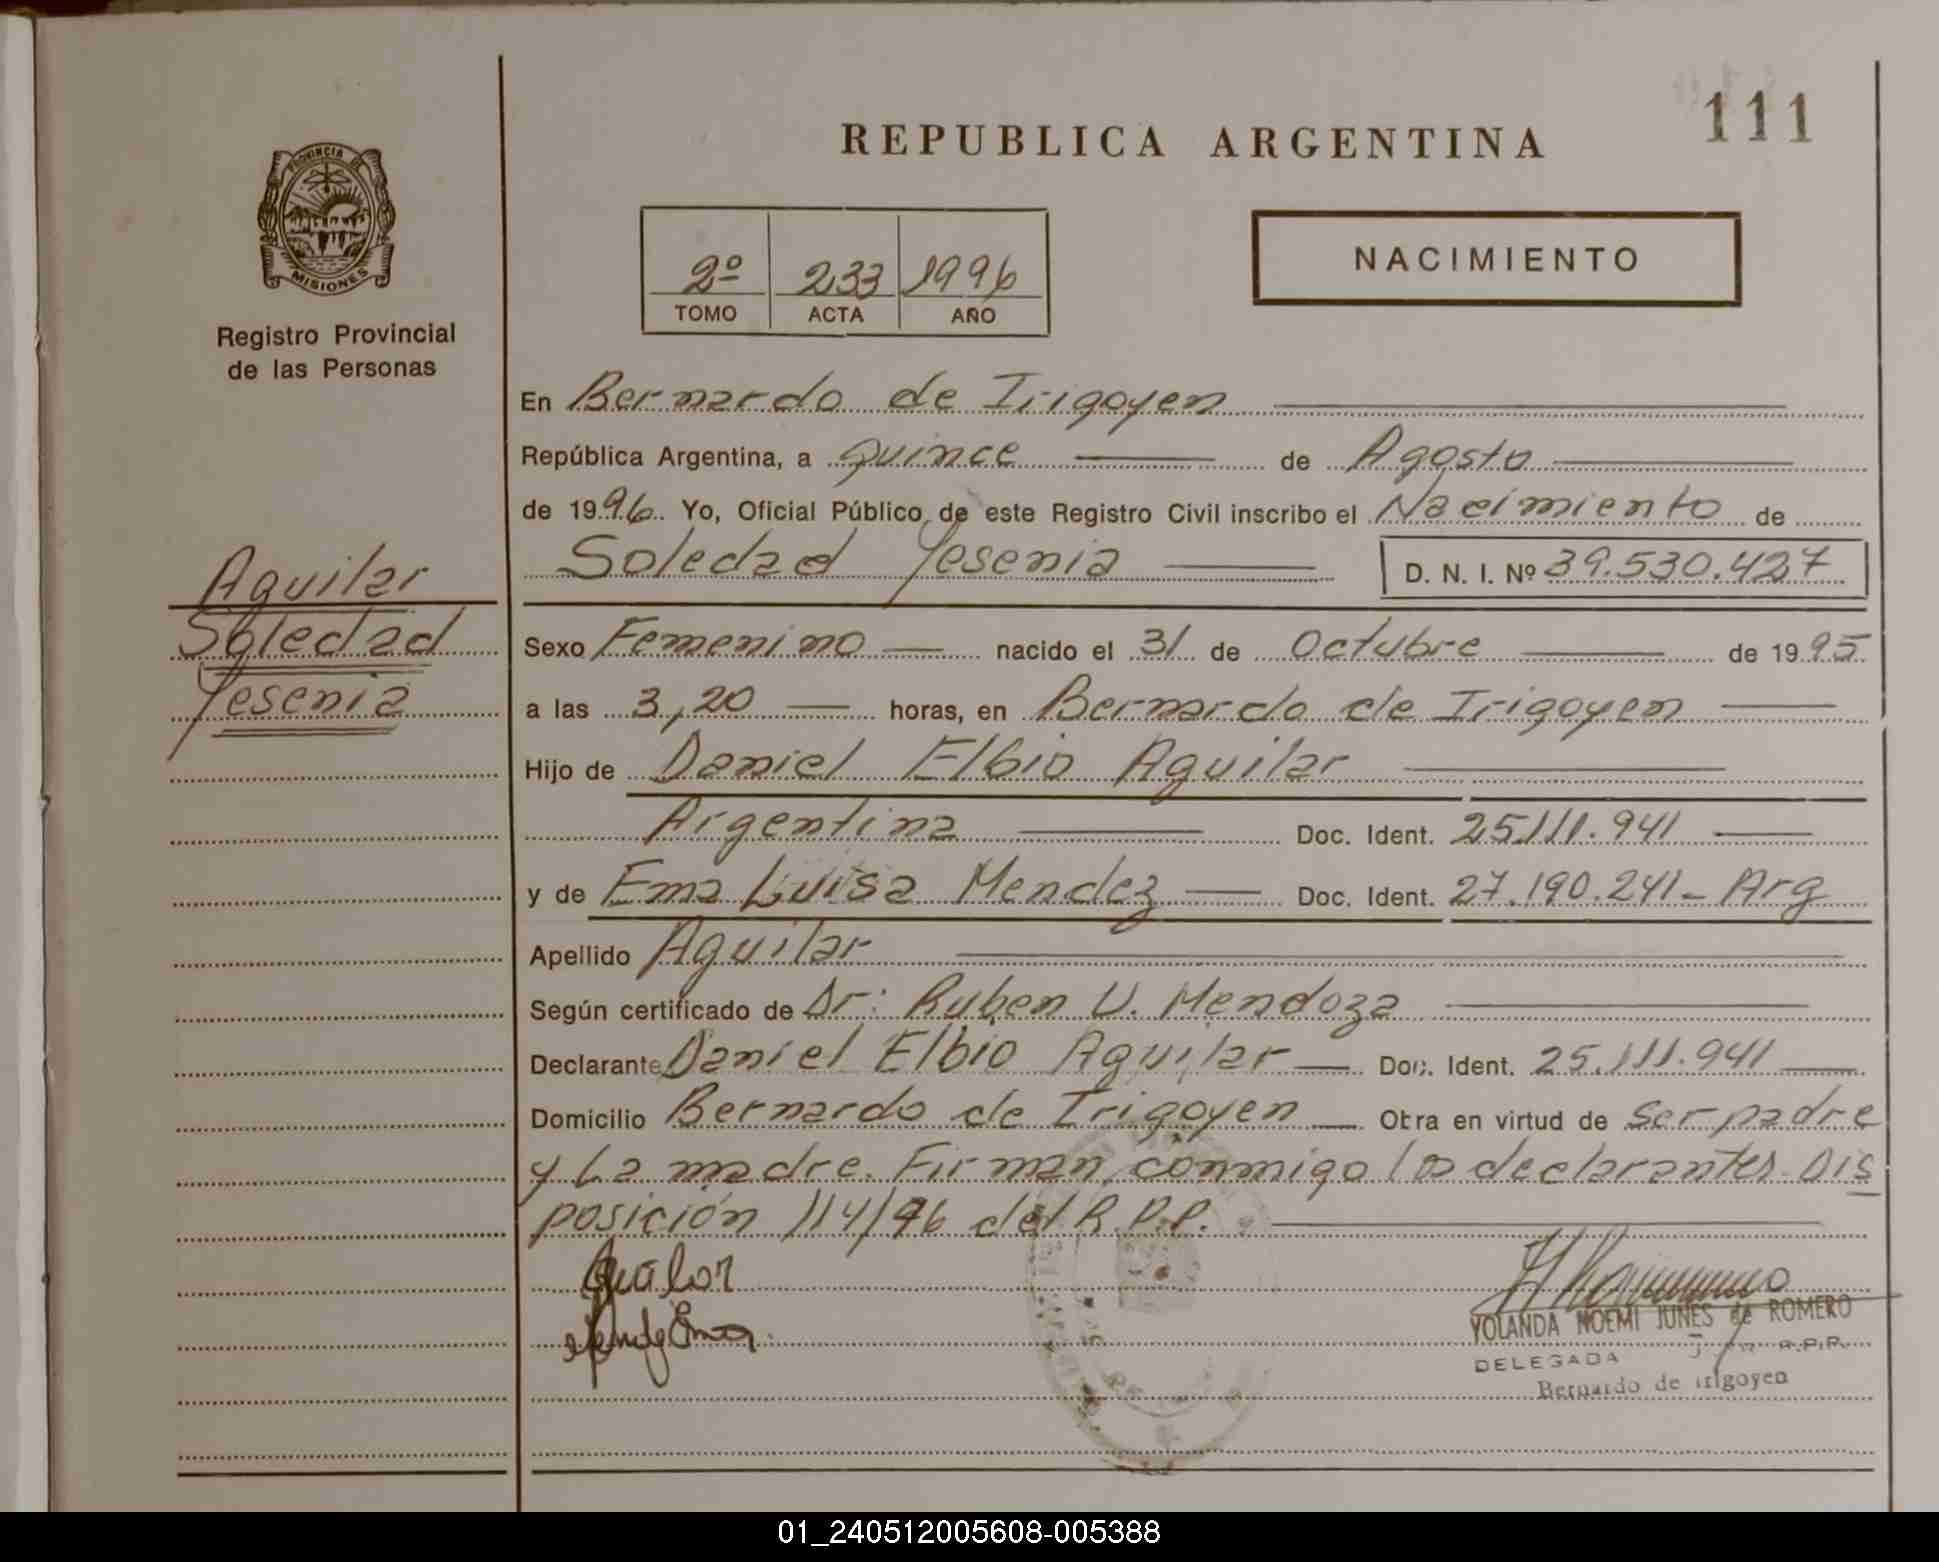 111
REPUBLICA ARGENTINA
PROVINCIA DE
MISIONES
Registro Provincial
de las Personas
2º 233 1996
TOMO ACTA AÑO
NACIMIENTO
En Bernardo de Irigoyen
República Argentina, a quince de Agosto
de 1996. Yo, Oficial Público de este Registro Civil inscribo el Nacimiento de
Soledad Yesenia D. N. I. Nº 39.530.427
Aguilar
Soledad
Yesenia
Sexo Femenino nacido el 31 de Octubre de 1995
a las 3,20 horas, en Bernardo de Irigoyen
Hijo de Daniel Elbio Aguilar
Argentina Doc. Ident. 25.111.941
y de Ema Luisa Mendez Doc. Ident. 27.190.241- Arg
Apellido Aguilar
Según certificado de Dr: Ruben U. Mendoza
Declarante Daniel Elbio Aguilar Doc. Ident. 25.111.941
Domicilio Bernardo de Irigoyen Obra en virtud de ser padre
y La madre. Firman conmigo los declarantes. Dis
posición 114/96 del R.P.P.
YOLANDA NOEMI JUNES de ROMERO
DELEGADA R.P.P.
Bernardo de Irigoyen
01_240512005608-005388